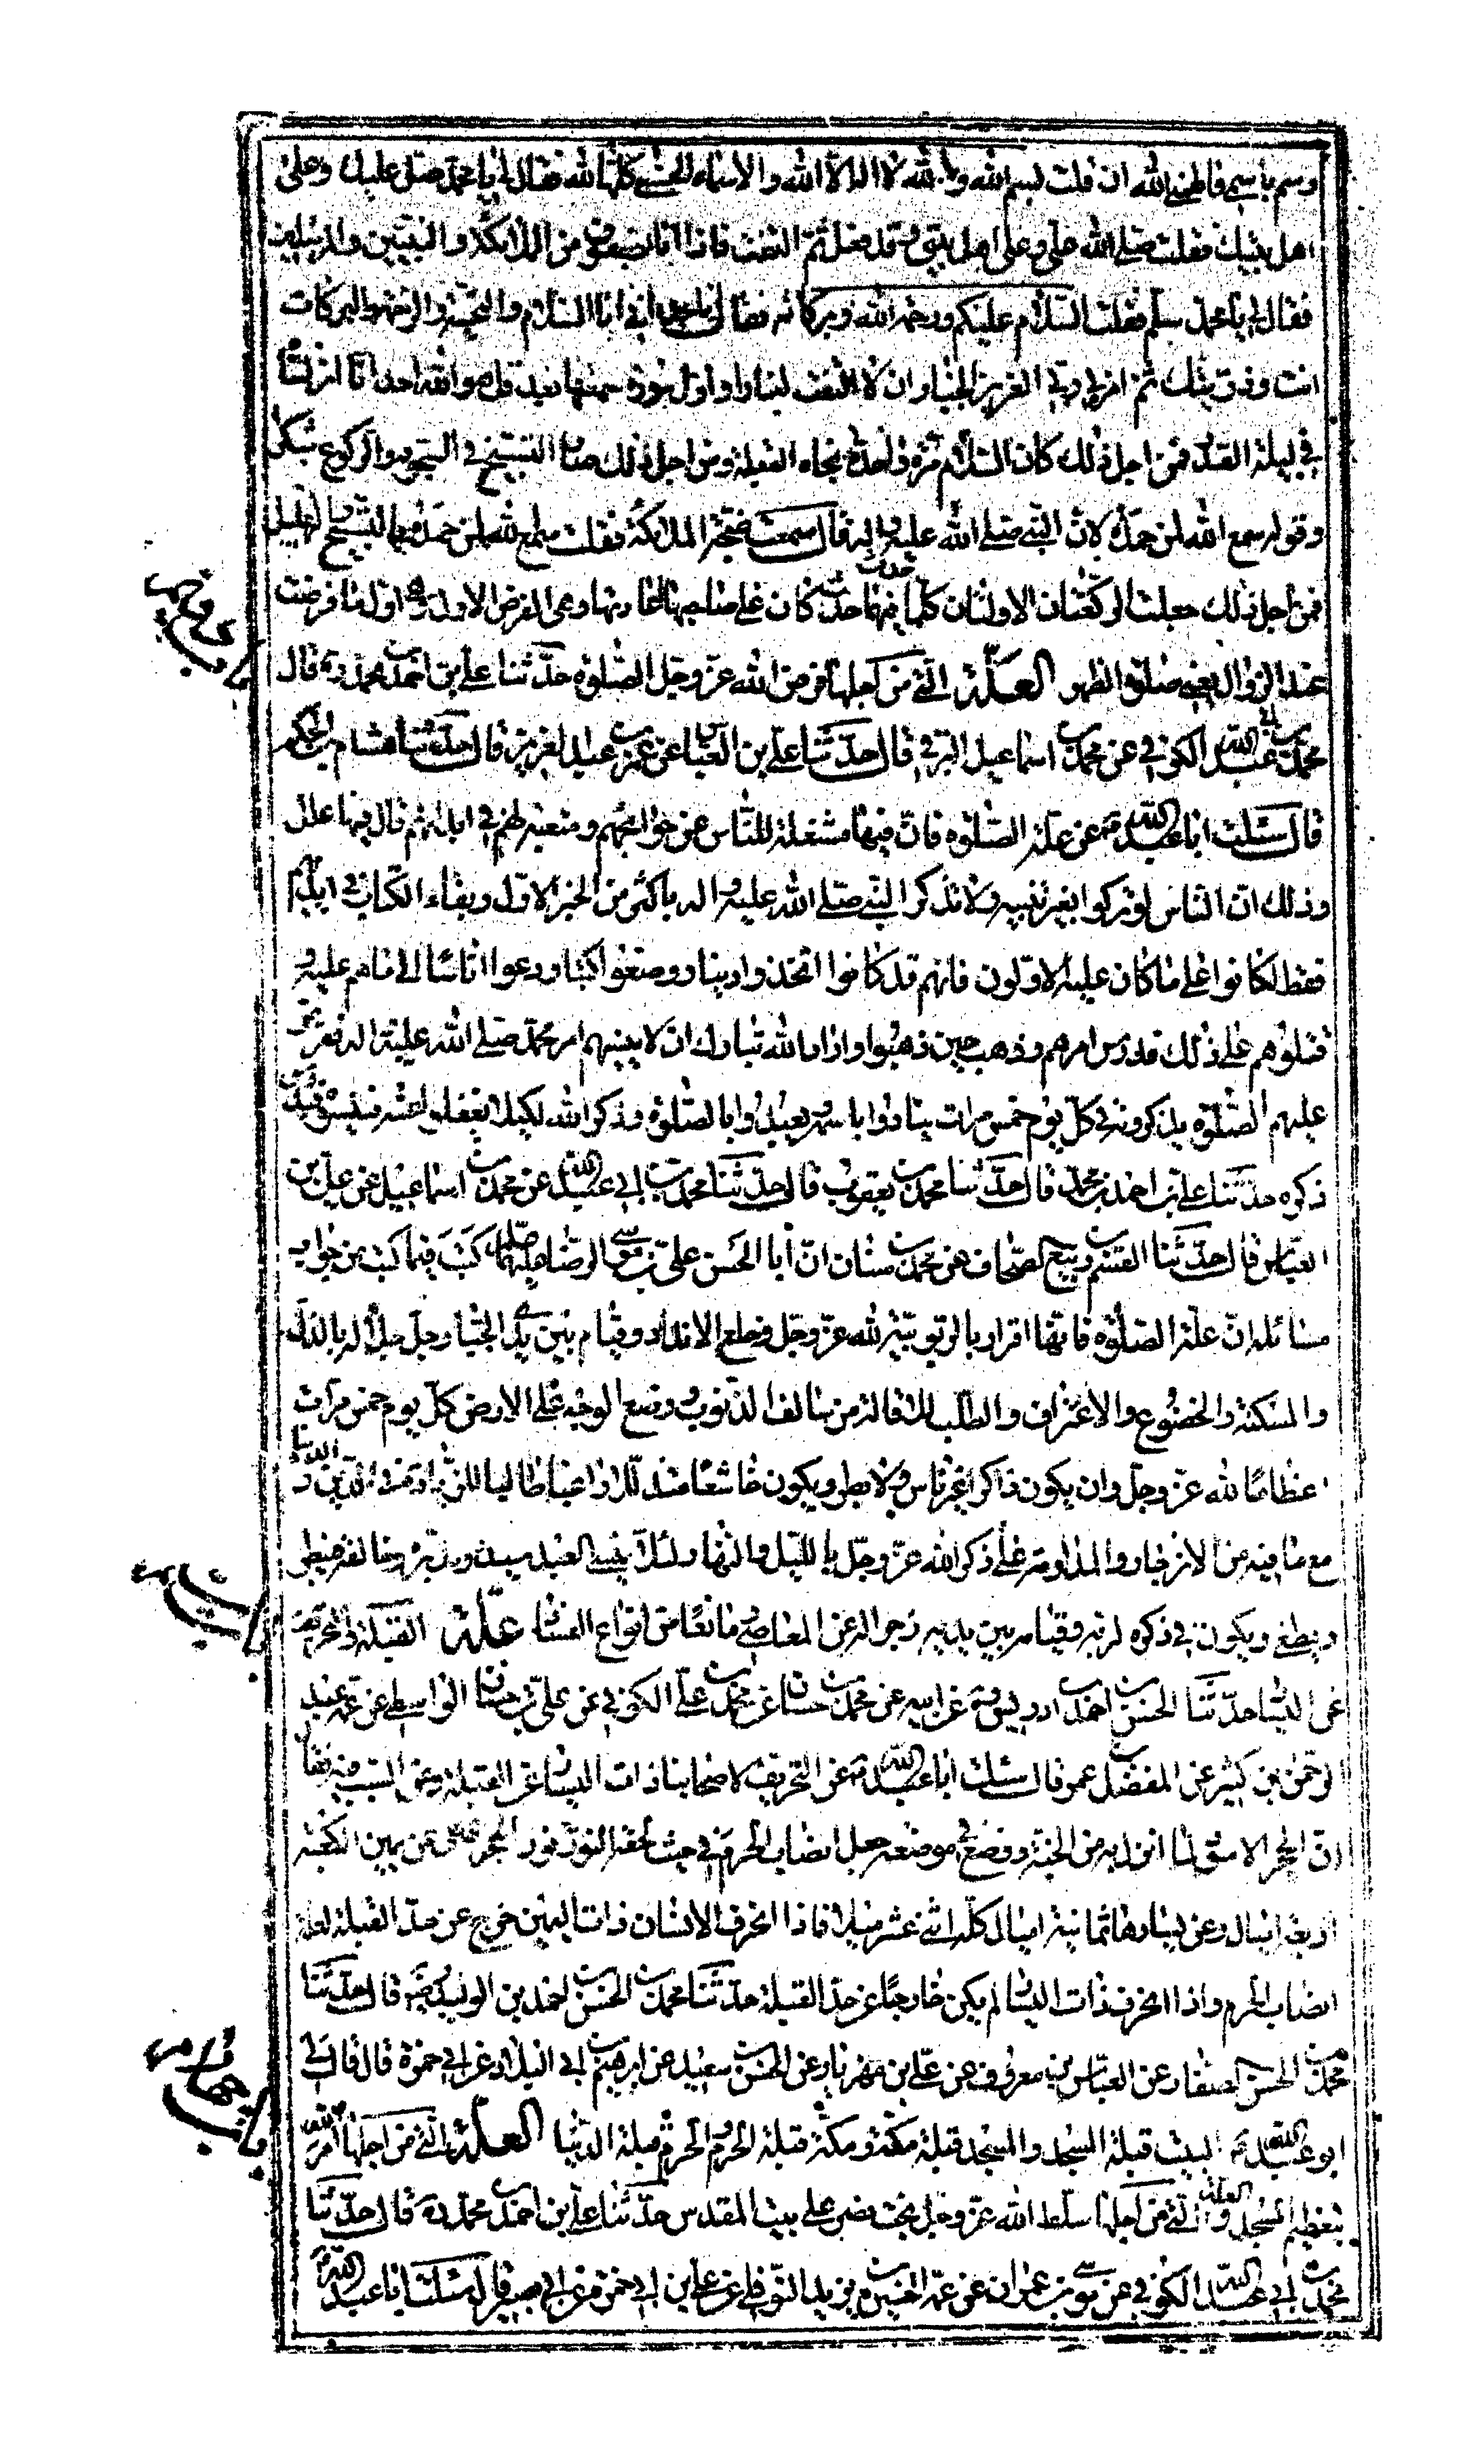 وسم باسمي فالهمني الله ان قلت بسم الله وبالله لا اله الا الله والاسماء الحسنى كلها لله فقال لي يا محمد صل عليك وعلى
اهل بيتك فقلت صلى الله علي وعلى اهل بيتي وقد فعل ثم التفت فاذا انا بصفوف من الملائكة والنبيين والمرسلين
فقال لي يا محمد سلم فقلت السلام عليكم ورحمة الله وبركاته فقال يا محمد اني انا السلام والتحية والرحمة والبركات
انت وذريتك ثم امرني ربي العزيز الجبار ان لا التفت يسارا واول سورة سمعتها بعد قل هو الله احد انا انزلناه
في ليلة القدر فمن اجل ذلك كان السلام مرة واحدة تجاه القبلة ومن اجل ذلك صار التسبيح في السجود والركوع شكرا
وقوله سمع الله لمن حمده لان النبي صلى الله عليه واله قال سمعت ضجة الملائكة فقلت سمع الله لمن حمده بالتسبيح والتهليل
فمن اجل ذلك جعلت الركعتان الاولتان كلما حدث فيهما حدث كان على صاحبهما اعادتها وهي الفرض الاول وهي اول ما فرضت
عند الزوال يعني صلوة الظهر العلة التي من اجلها فرض الله عز وجل الصلوة حدثنا علي بن احمد بن محمد ره قال
محمد بن ابي عبد الله الكوفي عن محمد بن اسماعيل البرمكي قال حدثنا علي بن العباس عن عمر بن عبد العزيز قال حدثنا هشام بن الحكم
قال سئلت ابا عبد الله ع عن علة الصلوة فان فيها مشغلة للناس عن حوائجهم ومتعبة لهم في ابدانهم قال فيها علل
وذلك ان الناس لو تركوا بغير تنبيه ولا تذكر النبي صلى الله عليه واله باكثر من الخبر الاول وبقاء الكتاب في ايديهم
فقط لكانوا على ما كان عليه الاولون فانهم قد كانوا اتخذوا دينا ووضعوا كتبا ودعوا اناسا الى ما هم عليه و
قتلوهم على ذلك فدرس امرهم وذهب حين ذهبوا واراد الله تبارك ان لا ينسيهم امر محمد صلى الله عليه واله ففرض
عليهم الصلوة يذكرونه في كل يوم خمس مرات ينادون باسمه وتعبدوا بالصلوة وذكر الله لكيلا يغفلوا عنه فينسوه فيدرس
ذكره حدثنا علي بن احمد بن محمد قال حدثنا محمد بن يعقوب قال حدثنا محمد بن ابي عبد الله عن محمد بن اسماعيل عن علي بن
العباس قال حدثنا القسم بن ربيع الصحاف عن محمد بن سنان ان ابا الحسن علي بن موسى الرضا عليهما كتب فيما كتب من جواب
مسائله ان علة الصلوة فانها اقرار بالربوبية لله عز وجل وخلع الانداد وقيام بين يدي الجبار جل جلاله بالذل
والمسكنة والخضوع والاعتراف والطلب للاقالة من سالف الذنوب ووضع الوجه على الارض كل يوم خمس مرات
اعظاما لله عز وجل وان يكون ذاكرا غير ناس ولا بطر ويكون خاشعا متذللا راغبا طالبا للزيادة في الدين والدنيا
مع ما فيه من الانزجار والمداومة على ذكر الله عز وجل بالليل والنهار لئلا ينسى العبد سيده ومدبره وخالقه فيبطر
ويطغى ويكون في ذكره لربه وقيامه بين يديه زجرا له عن المعاصي مانعا من انواع الفساد علة القبلة والتحريف
عن اليسار حدثنا الحسن بن احمد بن ادريس عن ابيه عن محمد بن حسان عن محمد بن علي الكوفي عن علي بن حسان الواسطي عن عمه عبد
الرحمن بن كثير عن المفضل بن عمر قال سئلت ابا عبد الله ع عن التحريف لاصحابنا ذات اليسار عن القبلة وعن السبب فيه فقال
ان الحجر الاسود لما انزل به من الجنة ووضع في موضعه جعل انصاب الحرم في حيث لحقه النور نور الحجر فهي عن يمين الكعبة
اربعة اميال وعن يسارها ثمانية اميال كله اثني عشر ميلا فاذا انحرف الانسان ذات اليمين خرج عن حد القبلة لقلة
انصاب الحرم واذا انحرف ذات اليسار لم يكن خارجا عن حد القبلة حدثنا محمد بن الحسن بن احمد بن الوليد رض قال حدثنا
محمد بن الحسن الصفار عن العباس بن معروف عن علي بن مهزيار عن الحسن بن سعيد عن ابرهيم بن ابي البلاد عن ابي حمزة قال قال لي
ابو عبد الله ع البيت قبلة المسجد والمسجد قبلة مكة ومكة قبلة الحرم والحرم قبلة الدنيا العلة التي من اجلها امر الله
بتعظيم المسجد والعلة التي من اجلها سلط الله عز وجل بخت نصر على بيت المقدس حدثنا علي بن احمد بن محمد ره قال حدثنا
محمد بن ابي عبد الله الكوفي عن موسى بن عمران عن عمه الحسين بن يزيد النوفلي عن علي بن ابي حمزة عن ابي بصير قال سئلت ابا عبد الله